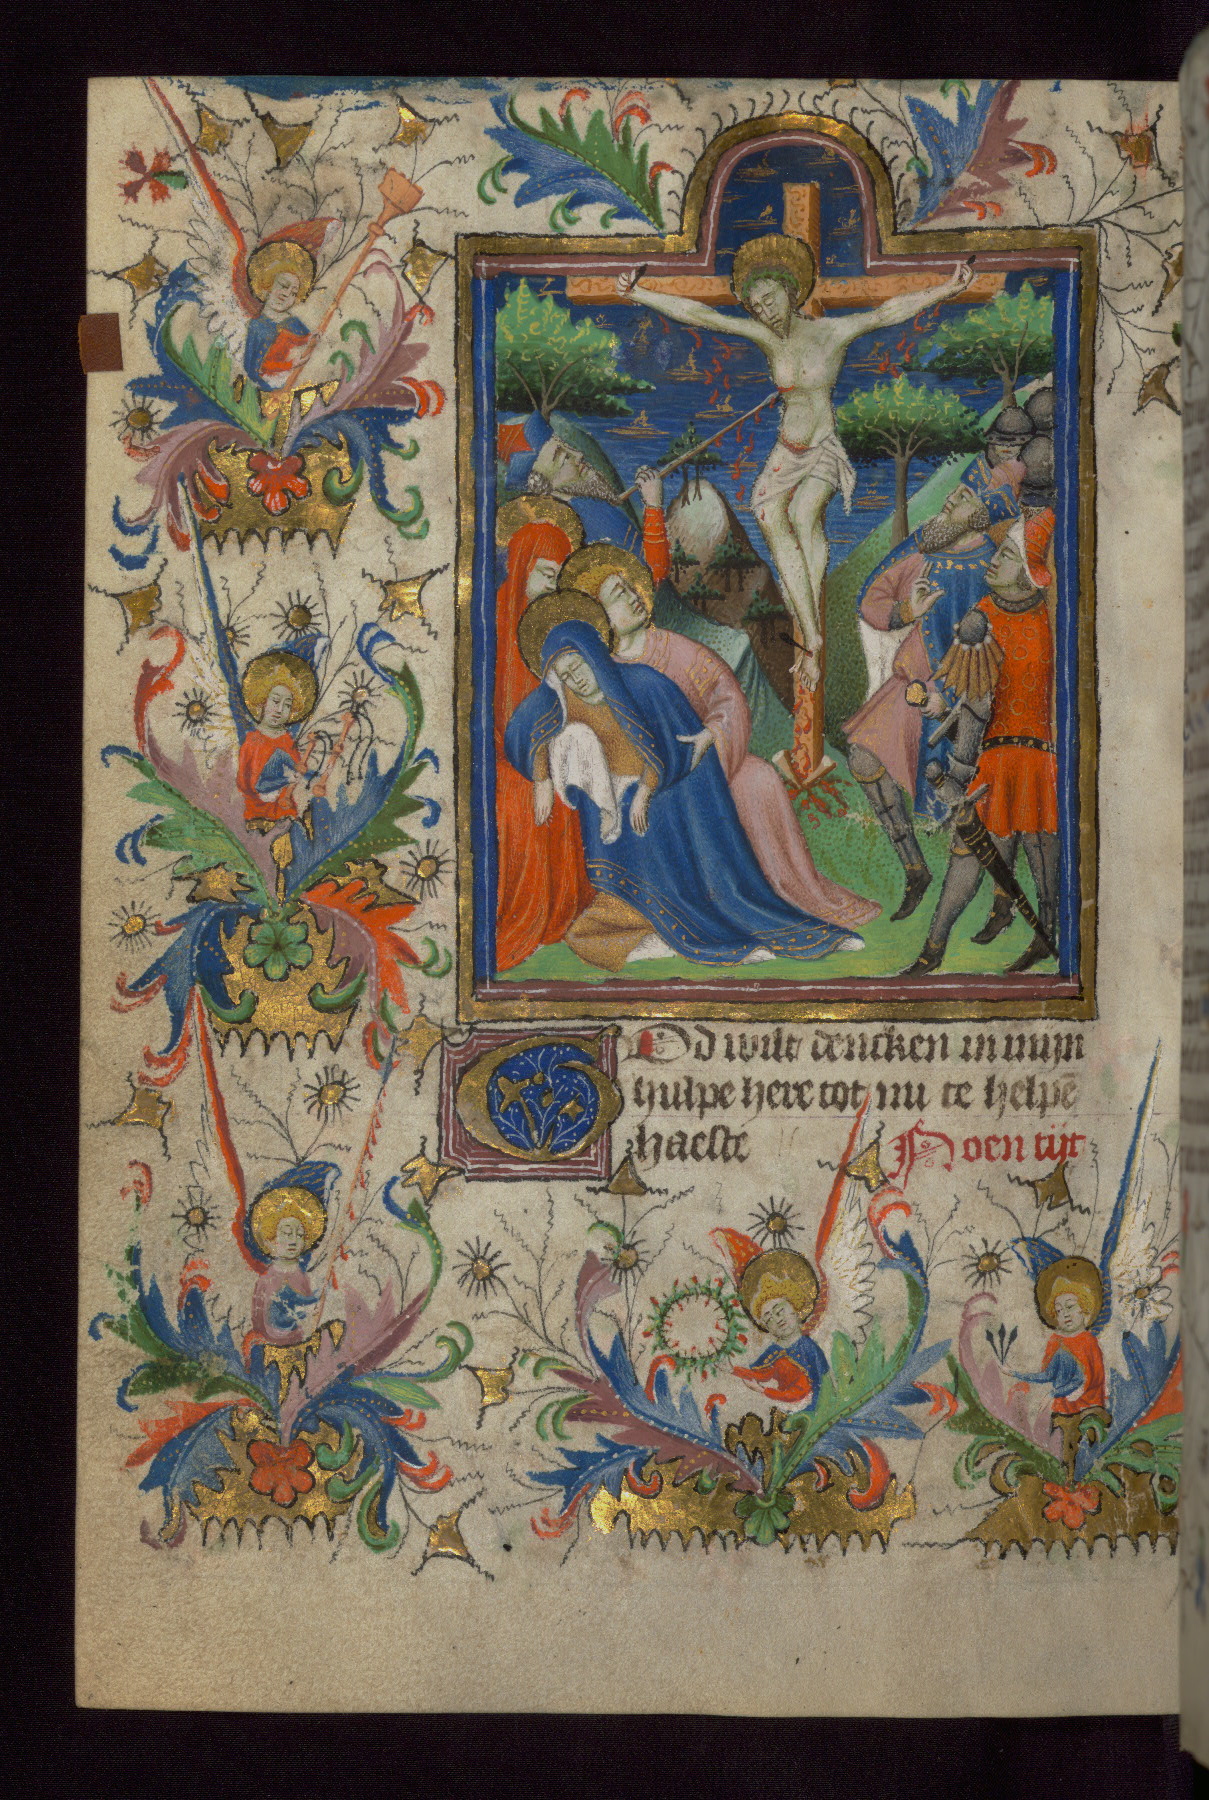 God wilt dencken in mijn
hulpe here tot mi te helpē
haeste Noen tijt